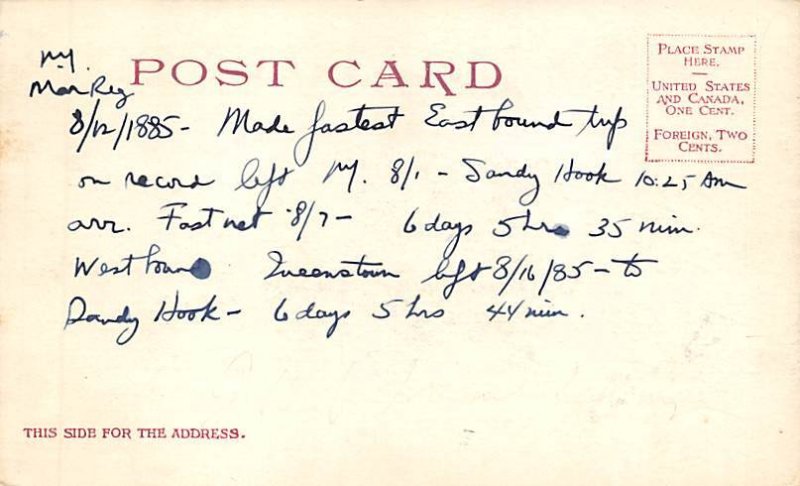 N.Y.
Mar Reg
POST CARD
PLACE STAMP
HERE.
UNITED STATES
AND CANADA,
ONE CENT.
FOREIGN, TWO
CENTS.
8/12/1885 - Made fastest East bound trip
on record left N.Y. 8/1 - Sandy Hook 10:25 Am
arr. Fastnet 8/7 - 6 days 5 hrs 35 min.
West bound Queenstown left 8/16/85 - to
Sandy Hook - 6 days 5 hrs 44 min.
THIS SIDE FOR THE ADDRESS.